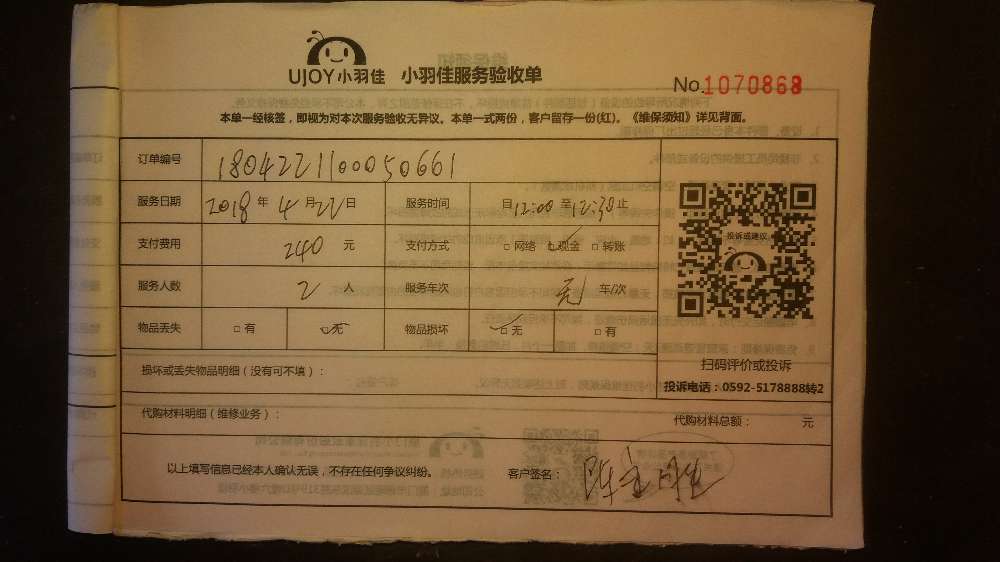 UJOY小羽佳 小羽佳服务验收单
No.1070868
本单一经核签，即视为对本次服务验收无异议。本单一式两份，客户留存一份(红)。《维保须知》详见背面。
订单编号 180422110005 0661
服务日期 2018 年 4 月 22 日 服务时间 自12:00至12:30止
支付费用 240 元 支付方式 □ 网络 ☑ 现金 □ 转账
服务人数 2 人 服务车次 无 车/次
物品丢失 □ 有 ☑ 无 物品损坏 ☑ 无 □ 有
投诉或建议
扫码评价或投诉
投诉电话：0592-5178888转2
损坏或丢失物品明细（没有可不填）：
代购材料明细（维修业务）： 代购材料总额： 元
以上填写信息已经本人确认无误，不存在任何争议纠纷。 客户签名：